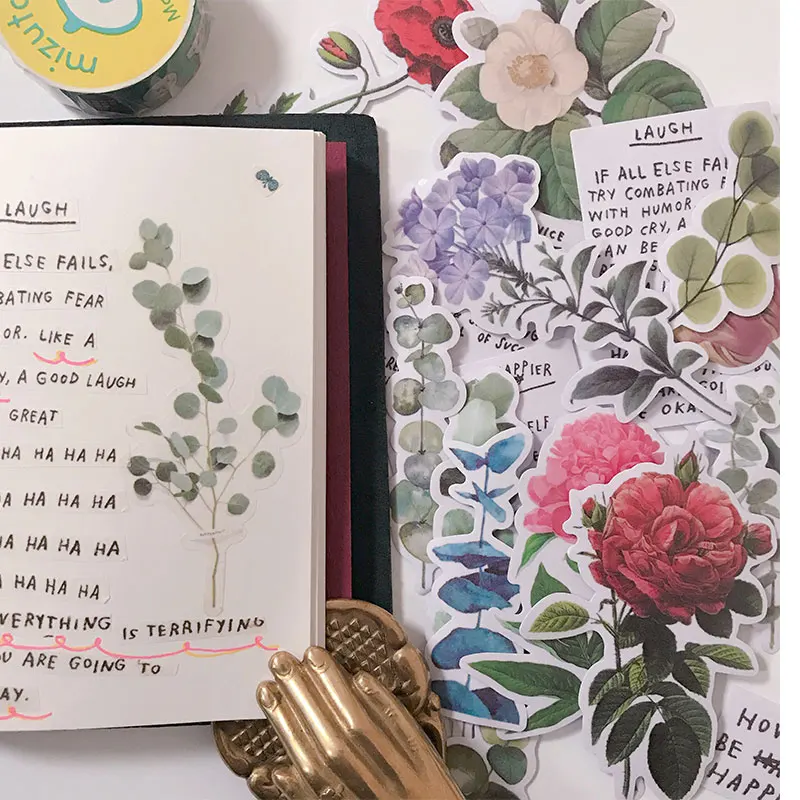 mizuta
LAUGH
ELSE FAILS,
BATING FEAR
OR. LIKE A
Y, A GOOD LAUGH
GREAT
HA HA HA HA
A HA HA HA HA
A HA HA HA HA
A HA HA HA HA
VERYTHING IS TERRIFYING
OU ARE GOING TO
AY.
LAUGH
IF ALL ELSE FAI
TRY COMBATING F
WITH HUMOR.
GOOD CRY, A
CAN BE
OF SUCC
APPIER
ELF
GOI
OKA
HOW
BE HA
HAPP